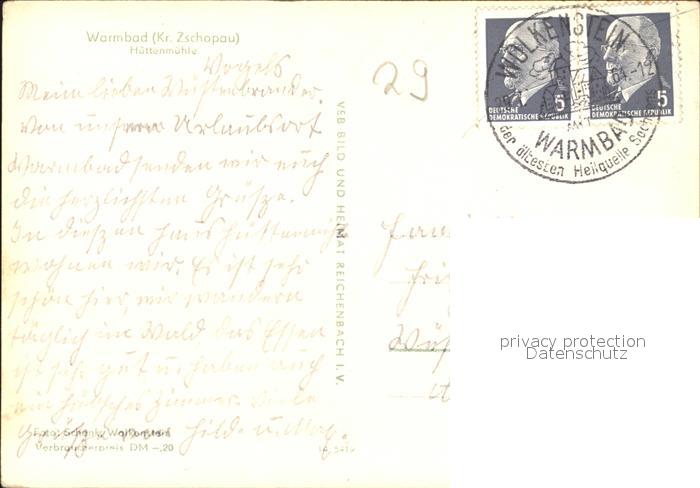 Warmbad (Kr. Zschopau)
Hüttenmühle
Vogels
Meine lieben Wüstenbrander.
Von unserem Urlaubsort
Warmbad senden wir euch
die herzlichsten Grüsze.
In diesen Haus Hüttenmühle
wohnen wir. Es ist sehr
schön hier, wir wandern
täglich im Wald. Das Essen
ist sehr gut u. haben auch
ein hübsches Zimmer. Viele
Grüße Hilde u. Max.
Foto: Schenk, Wolkenstein
Verbraucherpreis DM -,20
VEB BILD UND HEIMAT REICHENBACH I. V.
29
WOLKENSTEIN
WARMBAD
der ältesten Heilquelle Sachsens
5
DEUTSCHE
DEMOKRATISCHE REPUBLIK
5
DEUTSCHE
DEMOKRATISCHE REPUBLIK
Wüs
privacy protection
Datenschutz